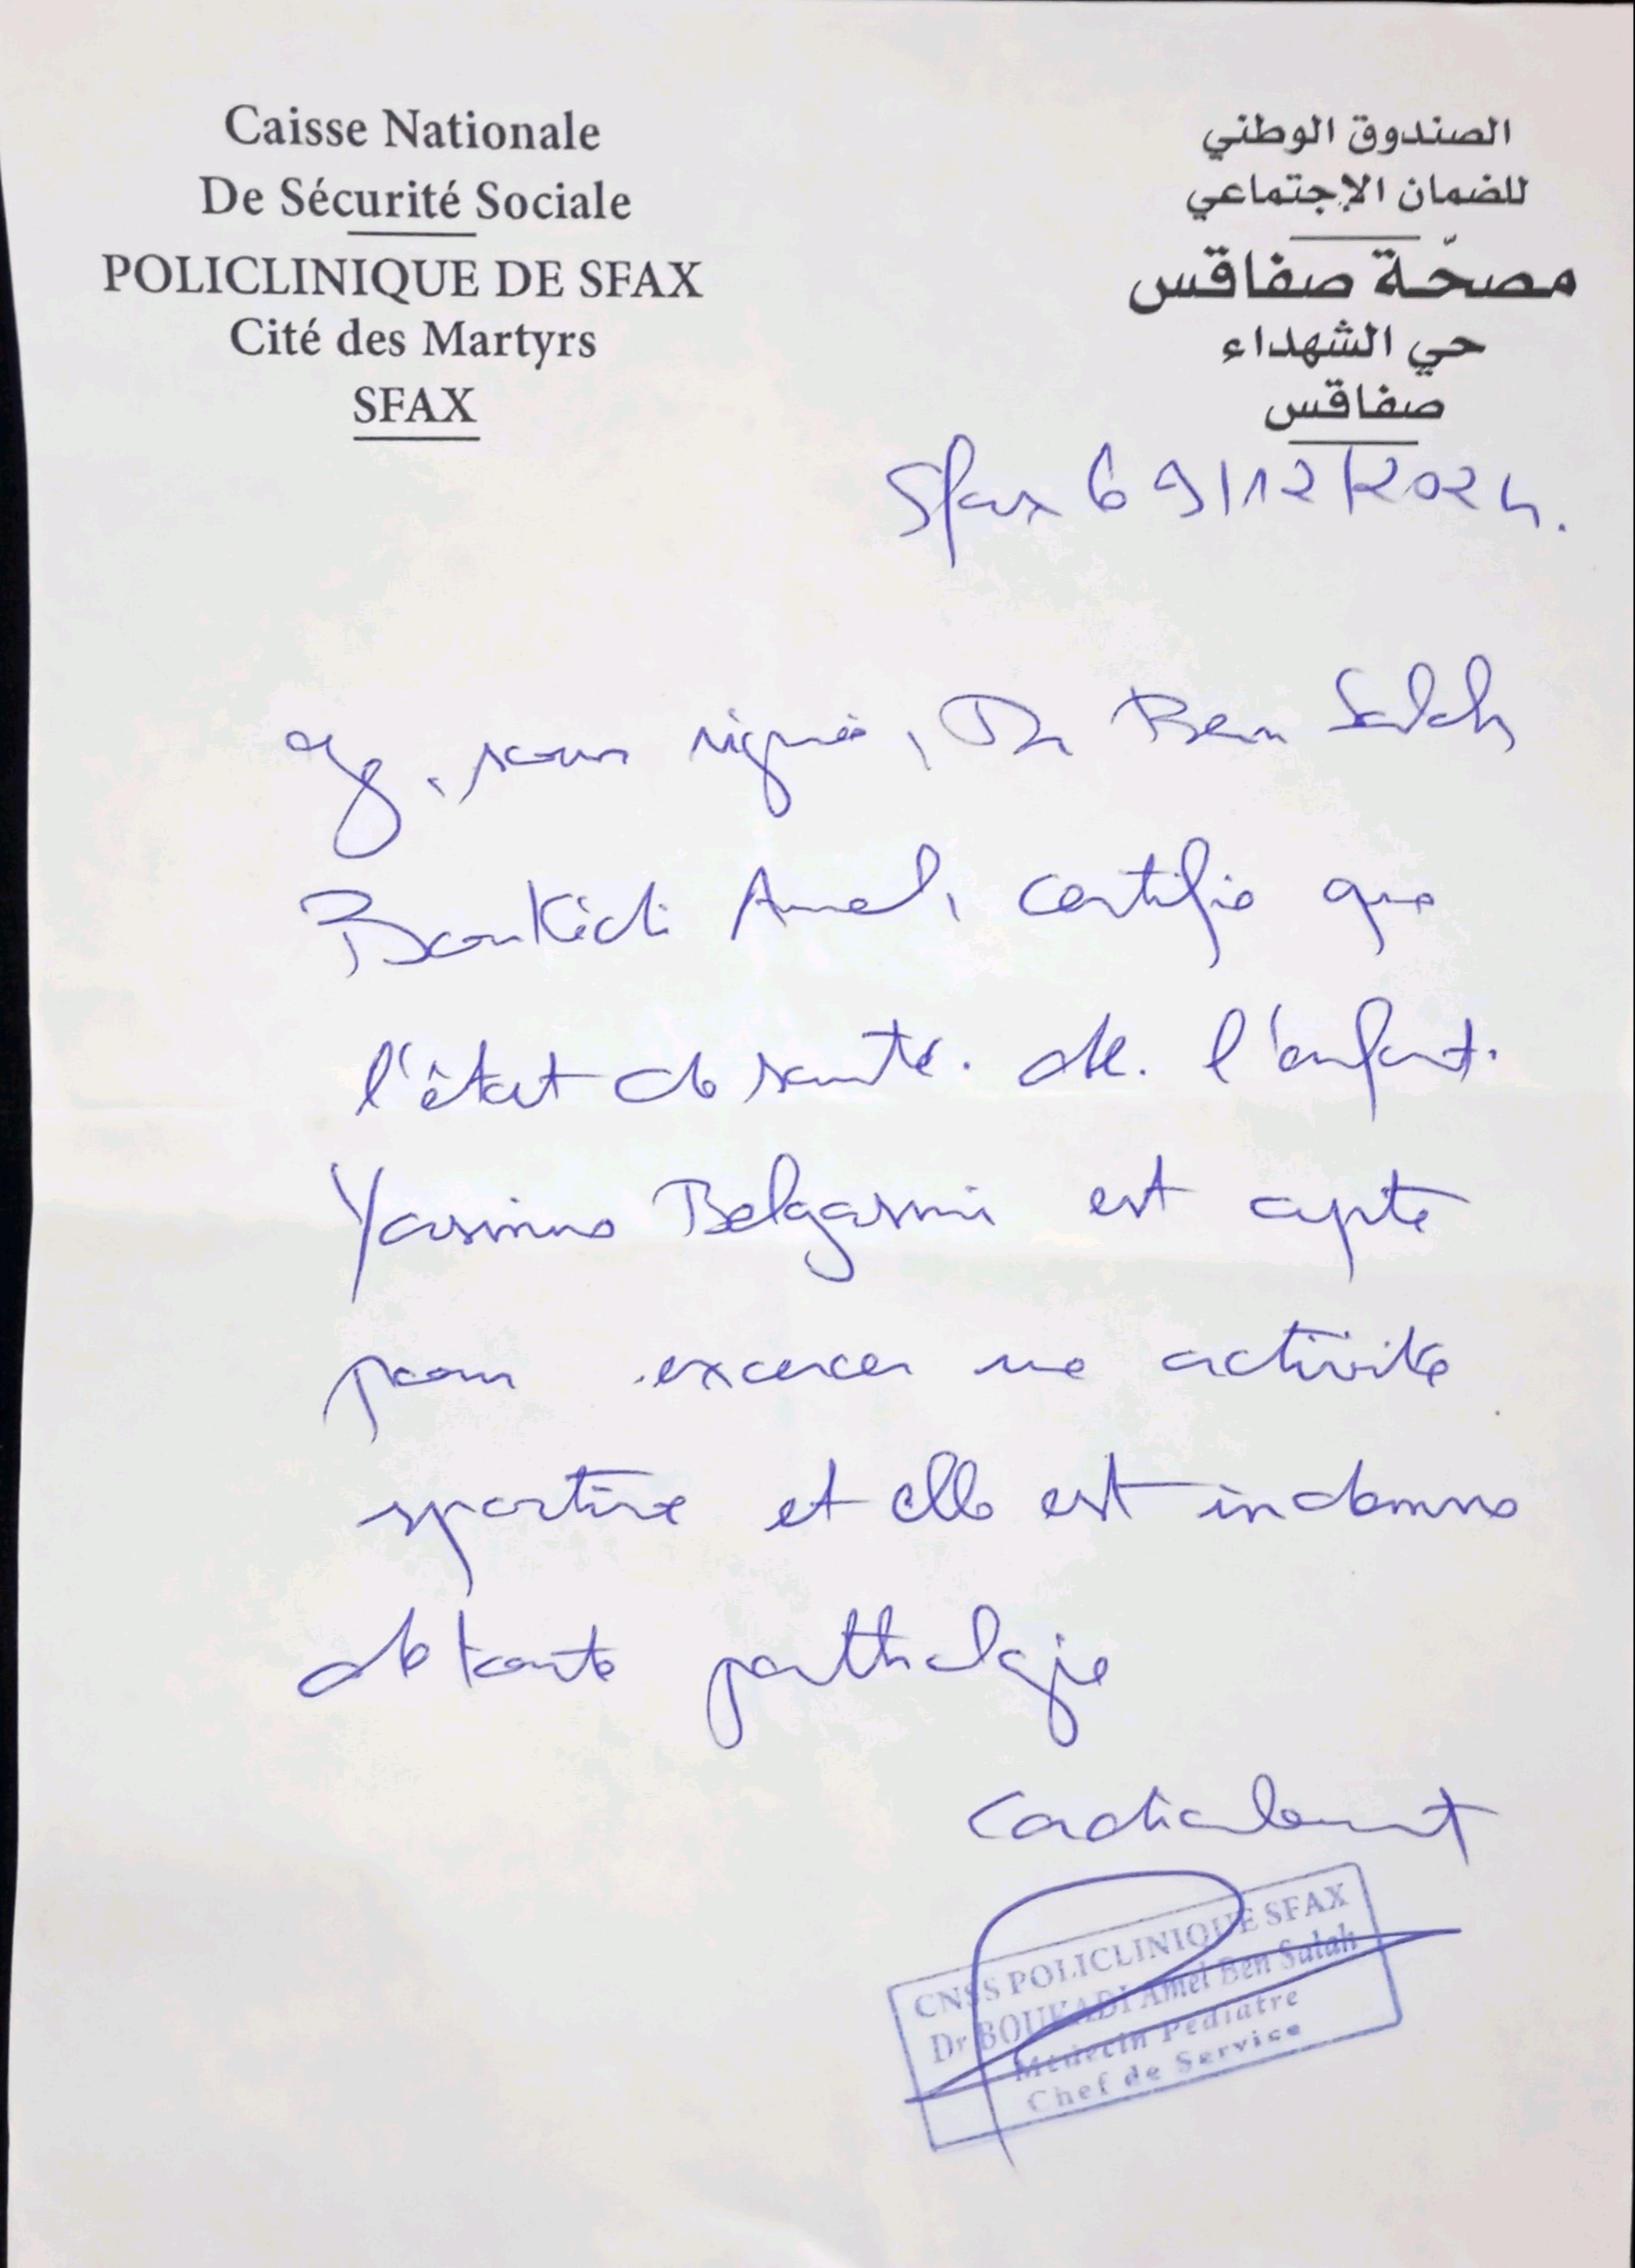 Caisse Nationale
De Sécurité Sociale
POLICLINIQUE DE SFAX
Cité des Martyrs
SFAX
الصندوق الوطني
للضمان الإجتماعي
مصحّة صفاقس
حي الشهداء
صفاقس
Sfax le 9/12/2024.
Je, sous signée, Dr Ben Salah
Boukadi Amel, certifie que
l'état de santé. de. l'enfant.
Yasmine Belgasmi est apte
pour excercer une activité
sportive et elle est indemne
de toute pathologie
Cordialement
CNSS POLICLINIQUE SFAX
Dr BOUKADI Amel Ben Salah
Médecin Pédiatre
Chef de Service